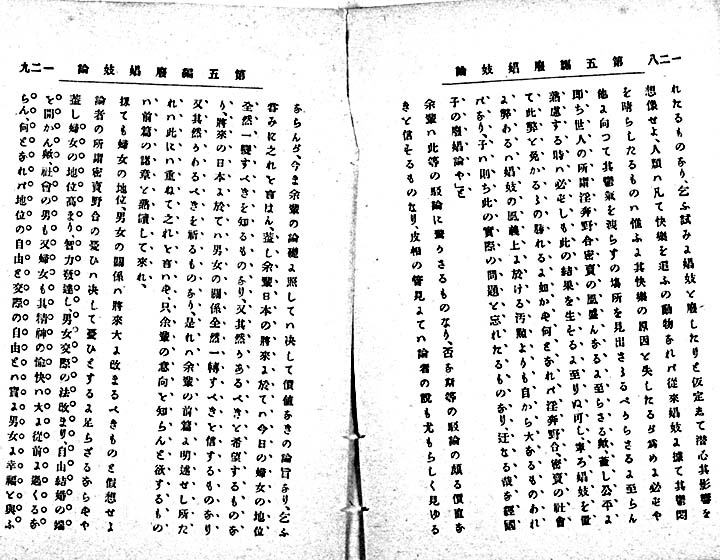 第五編廢娼妓論 一二八
れたるものなり、乞ふ試みよ娼妓と廢したりと假定して潜心其影響を
想像せよ、人類ハ凡て快樂を追ふの動物なれバ從來娼妓よ據て其鬱悶
を晴らしたるものハ惟ふよ其快樂の原因と失したるが爲めよ必ずや
他よ向つて其鬱氣を洩らすの塲所を見出さゞるべからざるよ至らん
即ち世人の所謂淫奔野合密賣の風盛んなるよ至らざる歟、蓋し公平よ
熟慮する時ハ必ずしも此の結果を生ずるよ至りぬ可し、寧ろ娼妓を置
て此弊と免かるゝの勝れるよ如かず何となれバ淫奔野合、密賣の社會
よ弊あるハ娼妓の風義上よ於ける汚點よりも自から大なるものあれ
バなり、子ハ則ち此の實際の問題と忘れたるものなり、迂なる哉を經國
子の廢娼論や」と
余輩ハ此等の駁論に驚うさるものなり、否な斯等の駁論の頗る價直な
きと信ずるものなり、皮相の管見よてハ論者の説も尤もらしく見ゆる
第五編廢娼妓論 一二九
ならんが、今ま余輩の論礎よ照してハ决して價値なきの論旨なり、乞ふ
吞みに之れと言はん、蓋し余輩日本の將來よ於てハ今日の婦女の地位
全然一變すべきを知るものなり、又其然うあるべきと希望するものな
り、將來の日本よ於てハ男女の關係全然一轉すべきと信ずるものなり
又其然うあるべきを祈るものなり、是れハ余輩の前篇よ明述せし所た
れハ此にハ重ねて之れと言ハず、只余輩の意向と知らんと欲するもの
ハ前篇の諸章と熟讀して來れ、
扨ても婦女の地位、男女の關係ハ將來大よ改まるべきものと假想せよ
論者の所謂密賣野合の憂ひハ决して憂ひとするよ足らざるならずや
蓋し婦女の地位高まり、智力發達し、男女交際の法改まり、自由結婚の端
を開かん歟、社會の男も又婦女も其精神の愉快ハ大よ從前よ過くるな
らん、何となれバ地位の自由と交際の自由とハ實よ男女よ幸福と與ふ